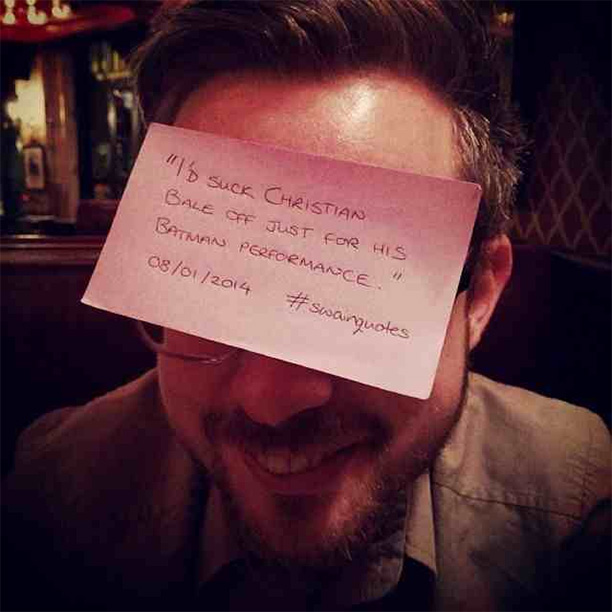 "I'D SUCK CHRISTIAN
BALE OFF JUST FOR HIS
BATMAN PERFORMANCE."
08/01/2014
#swanquotes